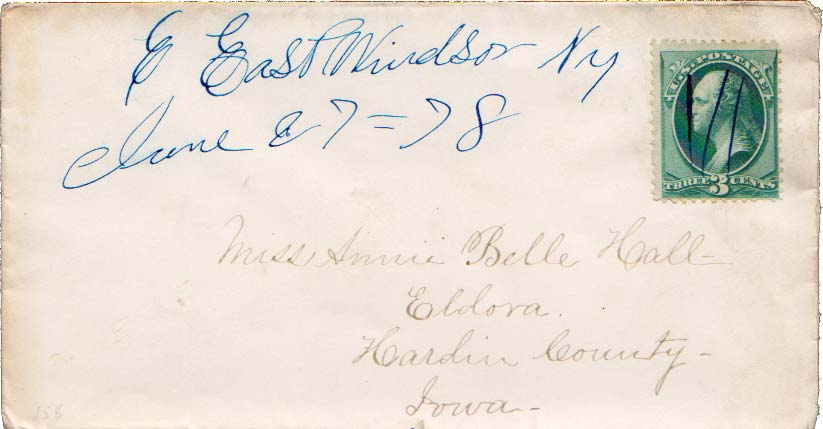 E East Windsor Ny
June 27=78
U.S. POSTAGE
THREE 3 CENTS
Miss Annie Belle Hall-
Eldora.
Hardin County-
Iowa-
158